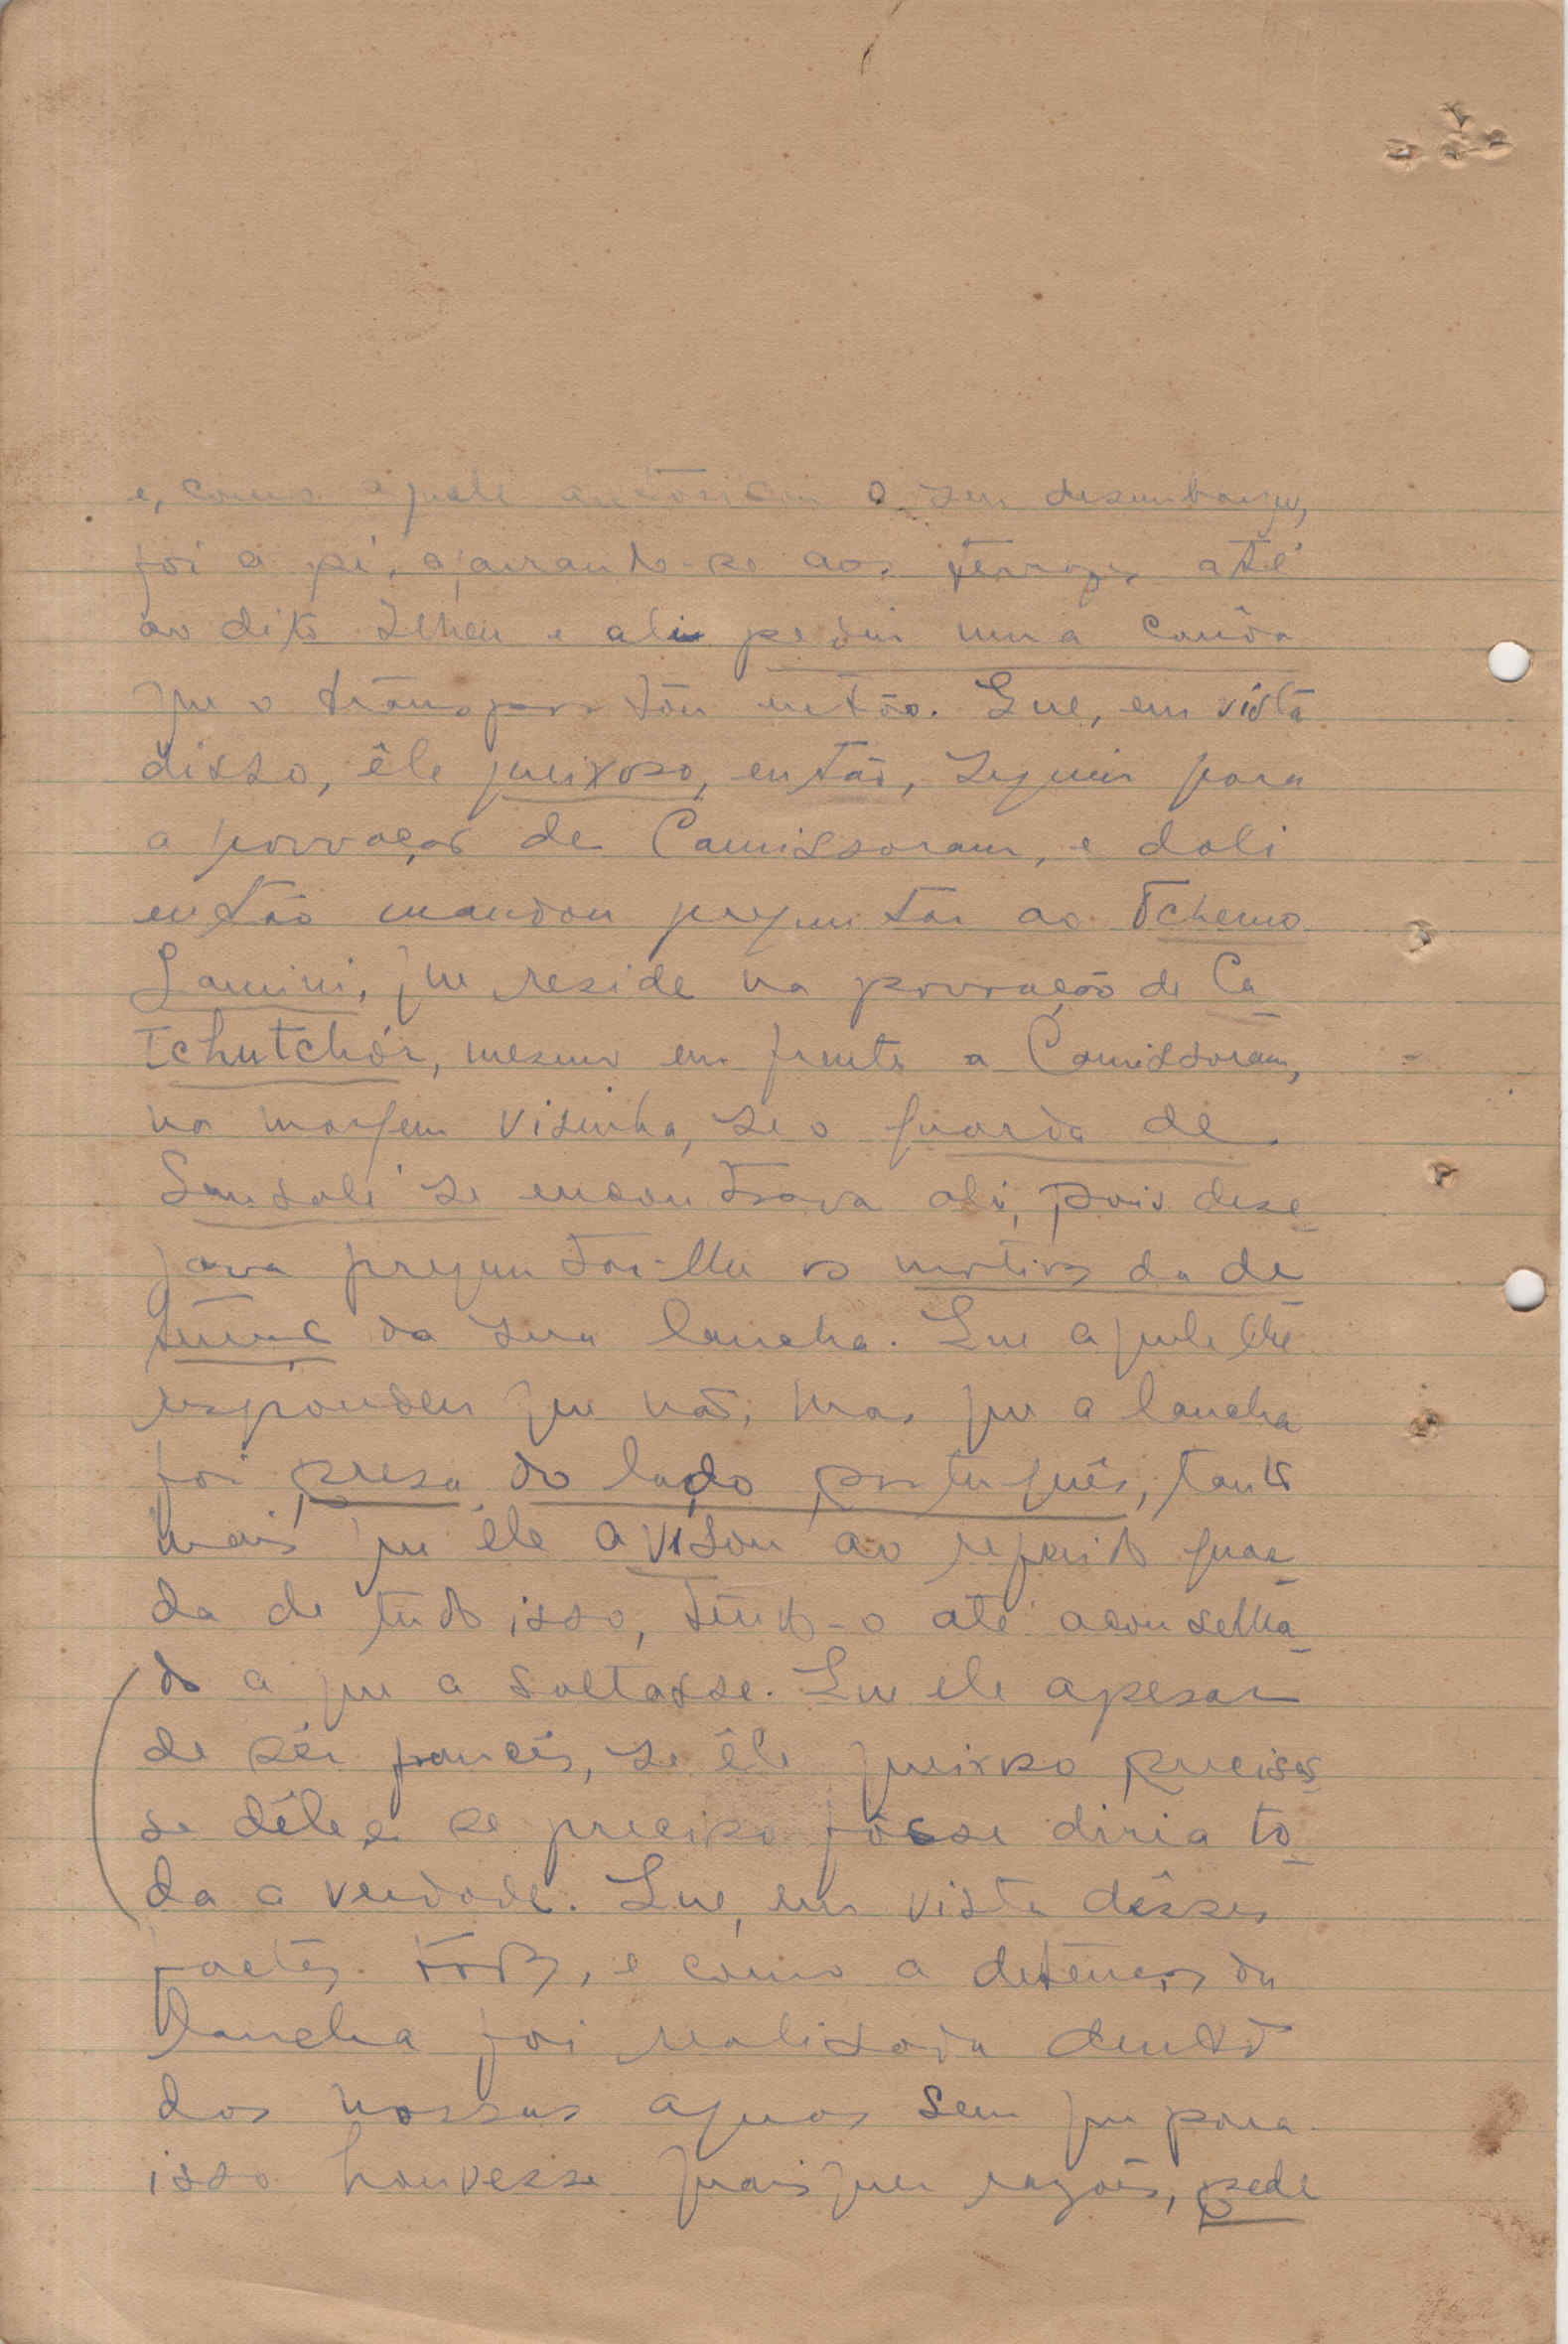 e, como aquele autorisou o seu desembarque,
foi a pé, agarrando-se aos tarrafes até
ao dito Ilheu e ali pediu uma canôa
que o transportou então. Que, em vista
disso, êle queixoso, então, seguiu para
a povoação de Camissoram, e dali
então mandou preguntar ao Tchemo
Lamini, que reside na povoação de Ca-
tchutchór, mesmo em frente a Camissoram,
na margem visinha, se o guarda de
Sansalé se encontrava ali, pois dese-
java preguntar-lhe os motivos da de-
tença da sua lancha. Que aquele lhe
respondeu que não, mas que a lancha
foi presa do lado português, tanto
mais que êle avisou ao referido guar-
da de tudo isso, tendo-o até aconselha-
do a que a soltasse. Que ele apesar
de sêr francês, se êle queixoso precisas-
se dêle e se preciso fôsse diria to-
da a verdade. Que, em vista dêsses
factos todos, e como a detenção da
lancha foi realisada dentro
das nossas aguas sem que para
isso houvesse quaisquer razões, pede